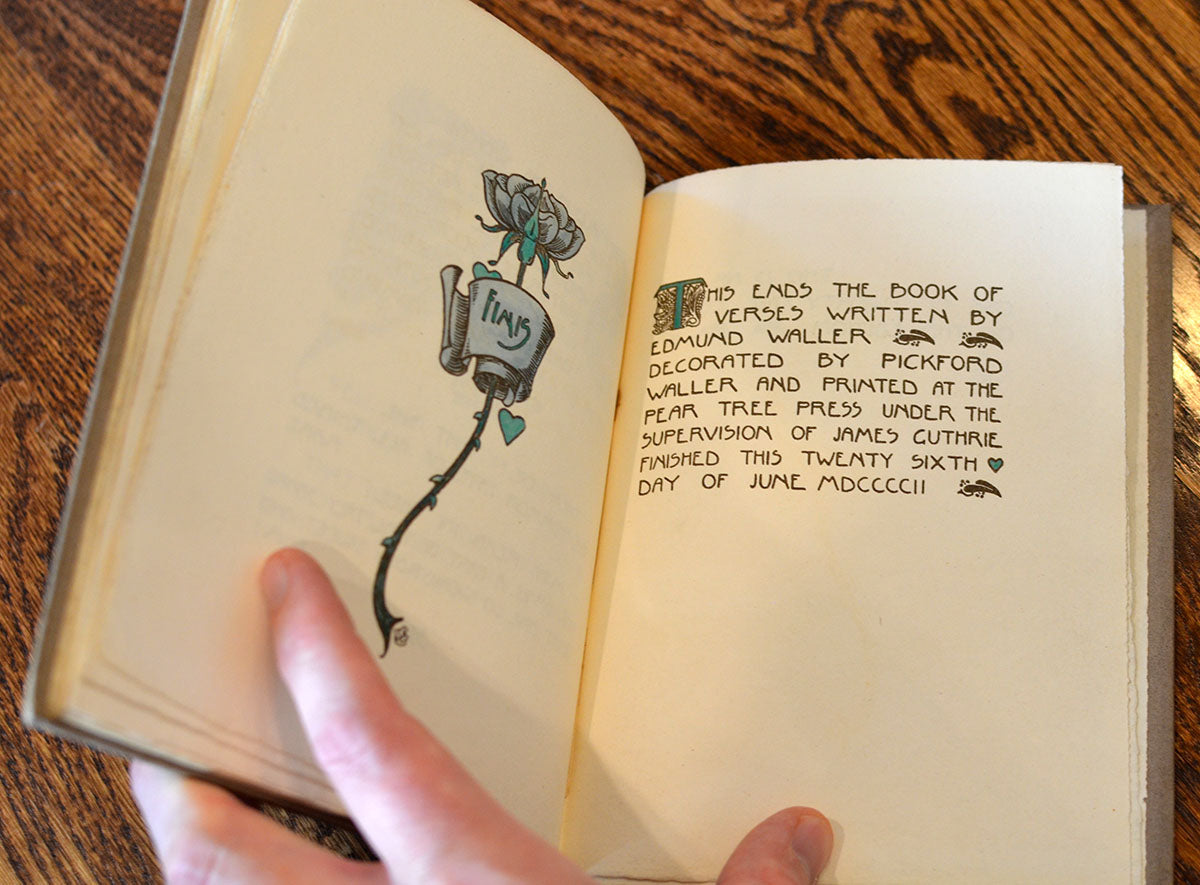 FINIS
THIS ENDS THE BOOK OF
VERSES WRITTEN BY
EDMUND WALLER
DECORATED BY PICKFORD
WALLER AND PRINTED AT THE
PEAR TREE PRESS UNDER THE
SUPERVISION OF JAMES GUTHRIE
FINISHED THIS TWENTY SIXTH
DAY OF JUNE MDCCCCII